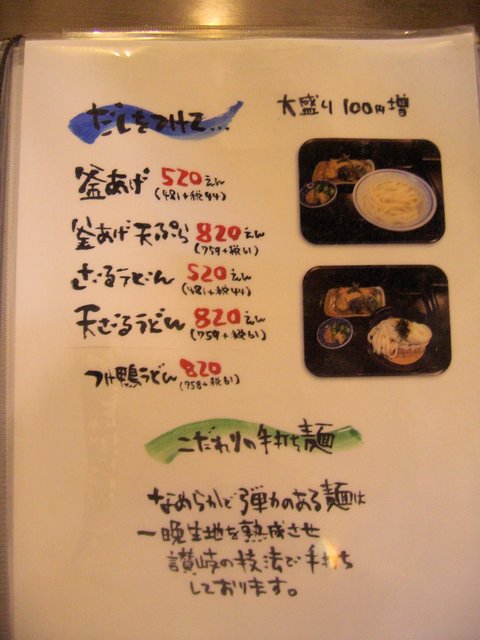 だしをつけて...
大盛り 100円増
釜あげ 520えん
(481+税44)
釜あげ天ぷら 820えん
(759+税61)
ざるうどん 520えん
(481+税44)
天ざるうどん 820えん
(759+税61)
つけ鴨うどん 820
(758+税61)
こだわりの手打ち麺
なめらかで弾力のある麺は
一晩生地を熟成させ
讃岐の技法で手打ち
しております。